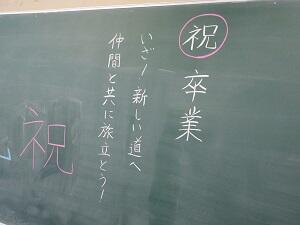 祝卒業
いざ！新しい道へ
仲間と共に旅立とう！
祝